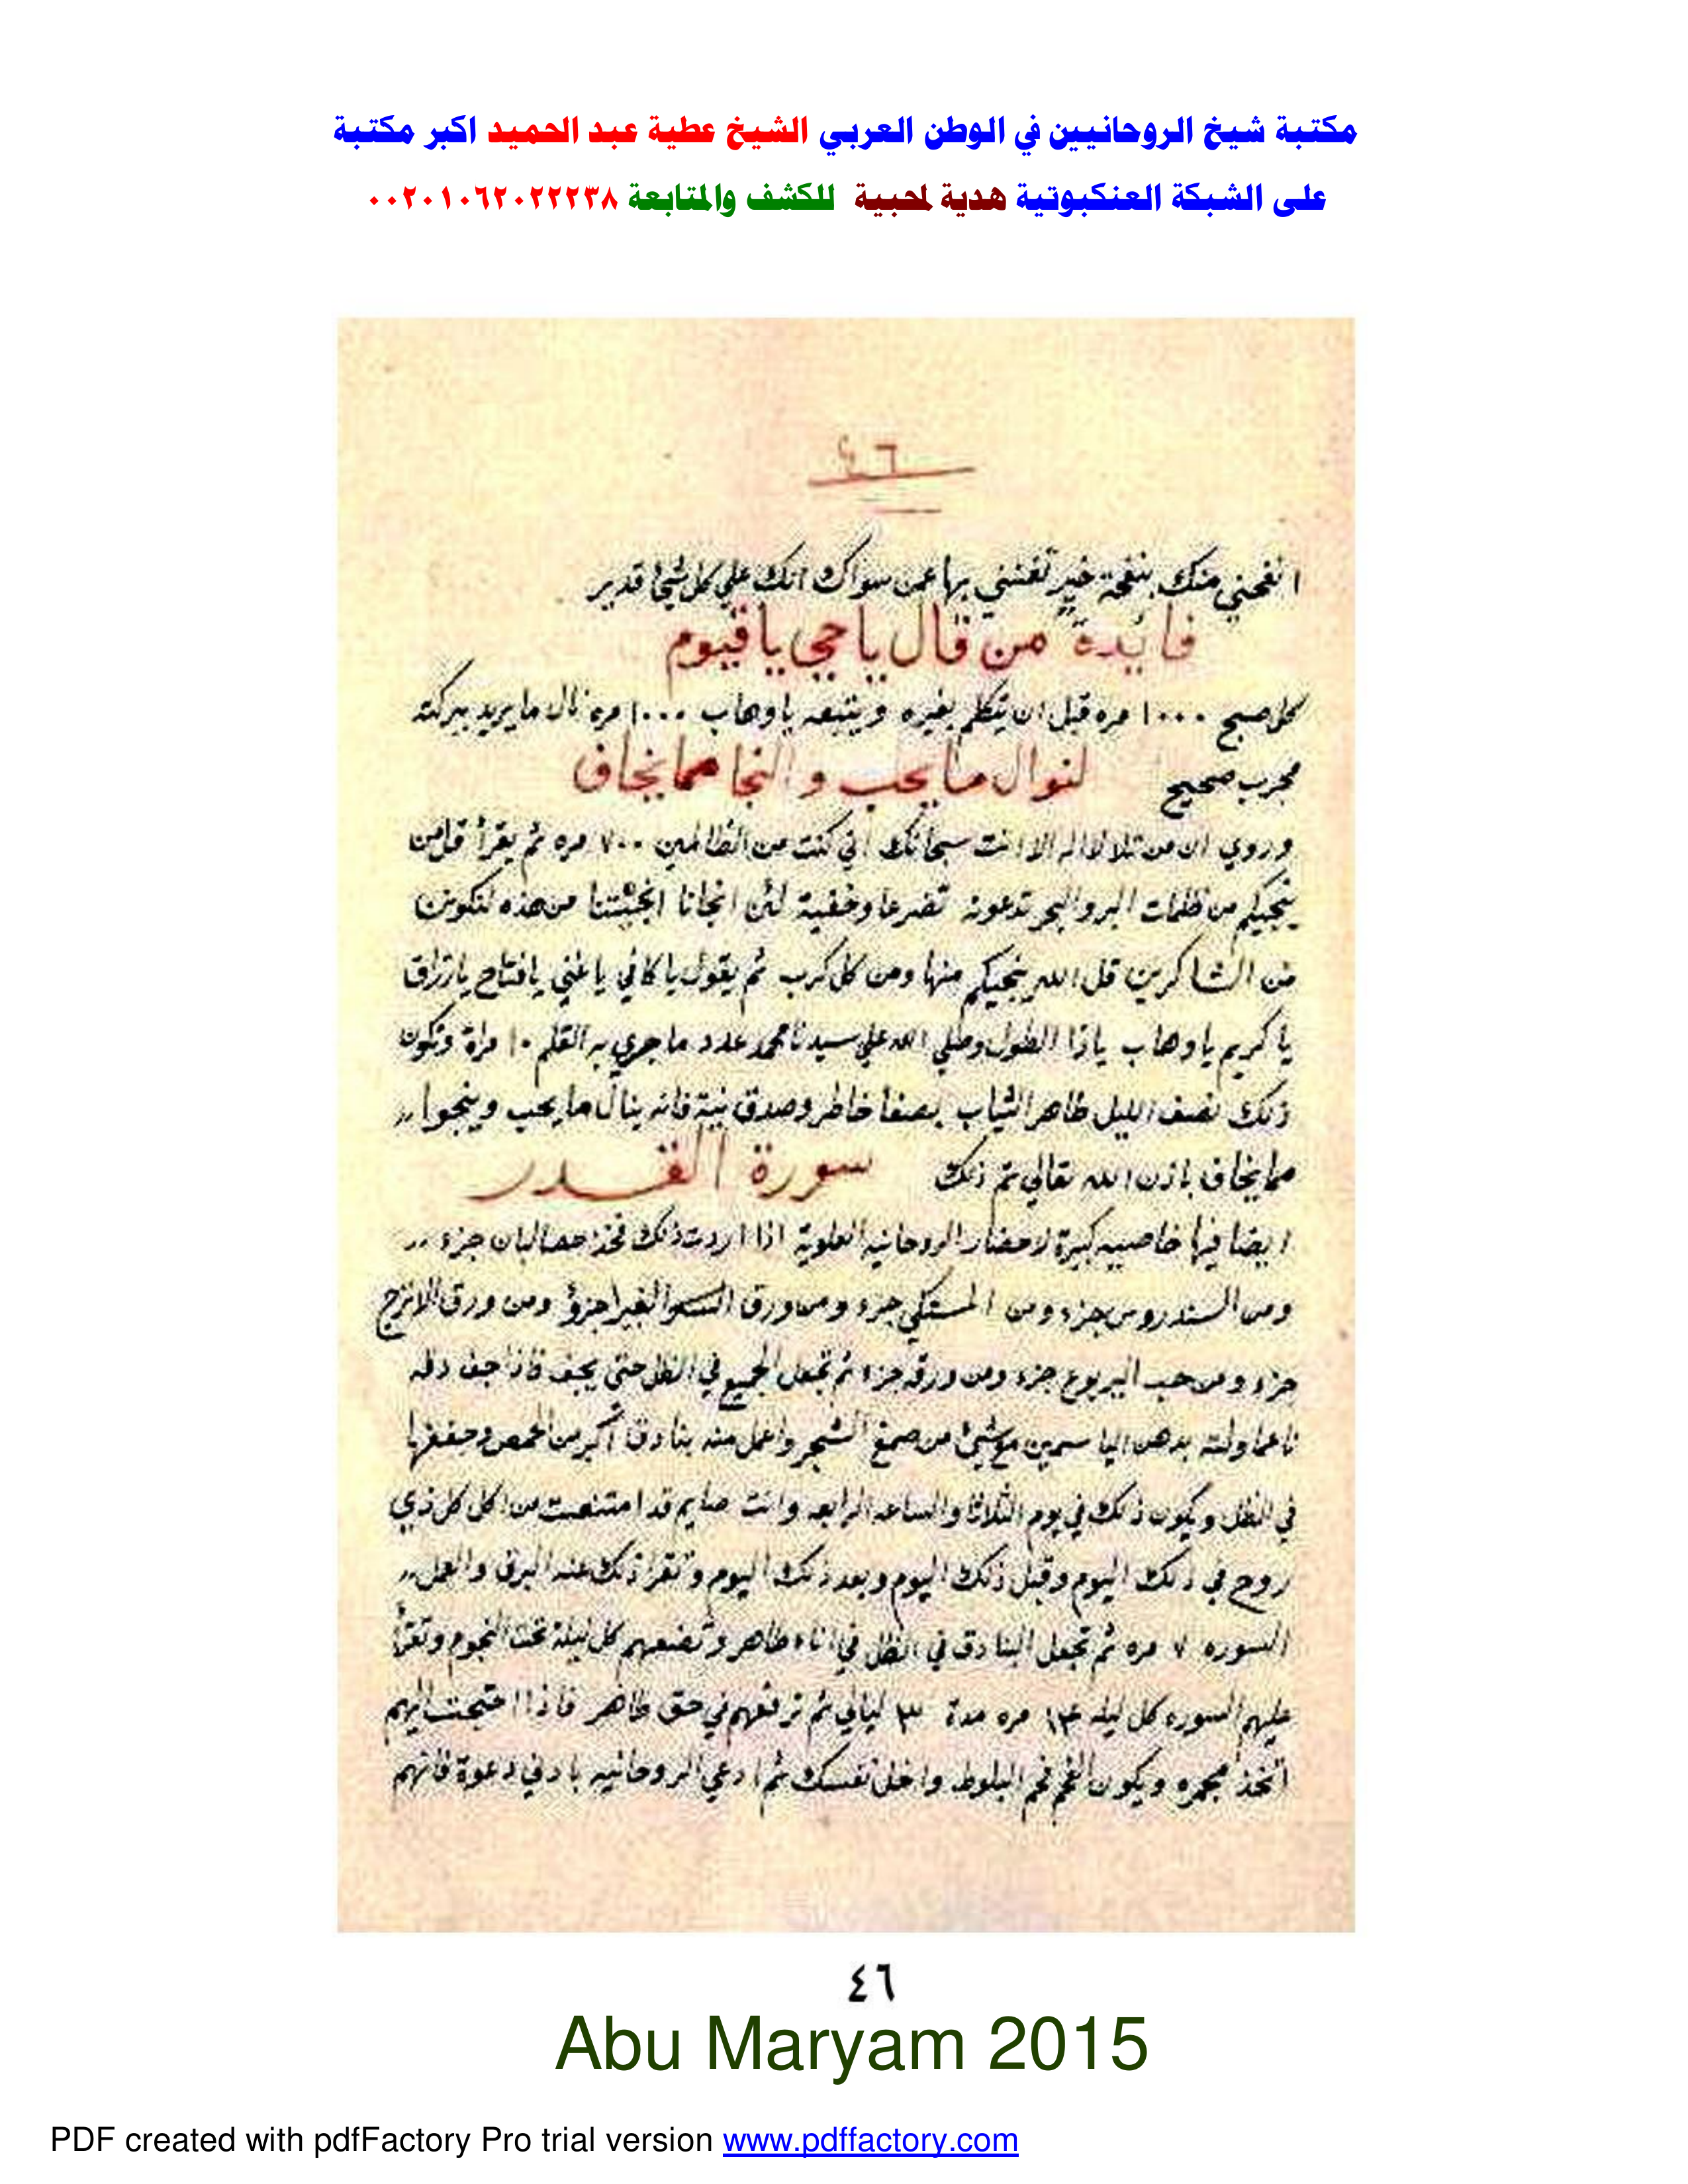 مكتبة شيخ الروحانيين في الوطن العربي الشيخ عطية عبد الحميد اكبر مكتبة
على الشبكة العنكبوتية هدية لمحبية للكشف والمتابعة ٠٠٢٠١٠٦٢٠٢٢٢٣٨
٤٦
انفحني منك بنفحة خير تغنني بها عمن سواك انك علي كل شئ قدير
فايدة من قال ياحي ياقيوم
كل صبح ١٠٠٠ مره قبل ان يتكلم بغيره ويتبعه ياوهاب ١٠٠٠ مره نال مايريد ببركته
مجرب صحيح لنوال مايحب والنجا ممايخاف
وروي ان من تلا لااله الاانت سبحانك اني كنت من الظالمين ٧٠٠ مره ثم يقرأ قل من
ينجيكم من ظلمات البر والبحر تدعونه تضرعا وخفية لئن انجانا من هذه لنكونن
من الشاكرين قل الله ينجيكم منها ومن كل كرب ثم يقول يا كافي ياغني يافتاح يارزاق
ياكريم ياوهاب ياذا الطول وصلي الله علي سيدنا محمد عدد ماجري به القلم ١٠ مراة وتكون
ذلك نصف الليل طاهر الثياب بصفا خاطر وصدق نية فانه ينال مايحب وينجوا
ممايخاف باذن الله تعالي تم ذلك سورة القدر
ايضا فيها خاصيه كبيرة لاحضار الروحانيه العلوية اذا اردت ذلك فخذ حصالبان جزء
ومن السندروس جزء ومن المستكي جزء ومن ورق جزؤ ومن ورق الاترج
جزء ومن حب اليربوع جزء ومن ورقه جزء ثم تجعل الجميع في الظل حتي يجف فاذا جف دقه
ناعما ولته بدهن الياسمين مع شئ من صمغ الشجر واعمل منه بنادقا أكبر من الحمص وجففها
في الظل ويكون ذلك في يوم الثلاثا والساعه الرابعه وانت صايم قد امتنعت من اكل كل ذي
روح في ذلك اليوم وقبل ذلك اليوم وبعد ذلك اليوم وتقرا ذلك عند والعمل
السوره ٧ مره ثم تجعل البنادق في الظل في اناء طاهر وتضعهم كل ليلة تحت النجوم وتقرأ
عليهم السوره كل ليله مره مدة ٣ ليالي ثم ترفعهم في حق طاهر فاذا احتجت اليهم
اتخذ مجمره ويكون الفحم فحم البلوط واخل نفسك ثم ادعي الروحانيه بادني دعوة فانهم
٤٦
Abu Maryam 2015
PDF created with pdfFactory Pro trial version www.pdffactory.com